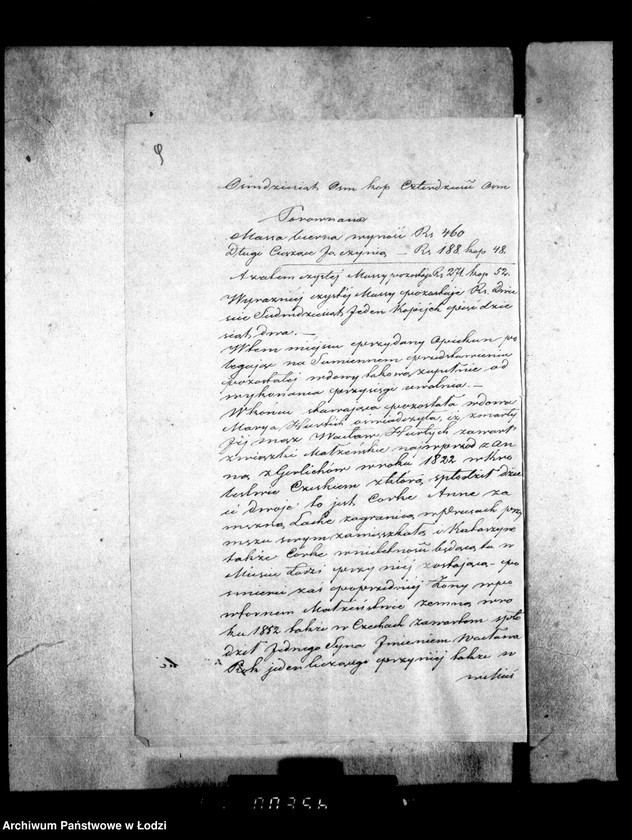 9
Ośmdziesiąt Osm kop Czterdzieści Osm
Porównanie
Massa bierna wynosi Rs 460
Długi Ciążące Ją czynią — Rs 188 kop 48.
A zatem czystej Massy pozostaje Rs 271 kop 52.
Wyraźniej czystej Massy pozostaje Rs. Dwie
ście Siedmdziesiąt Jeden Kopiejek pięćdzie
siąt dwa. —
W tem miejscu przydany Opiekun po
legając na Sumiennem przedstawieniu
pozostałej wdowy takową zupełnie od
wykonania przysięgi uwalnia. —
W końcu stawająca pozostała wdowa
Marya oświadczyła, iż zmarły
Jej mąż Wacław zawarł
związki Małżeńskie najwprzód z An
ną z Gerlichów w roku 1822 w Kró
lestwie Czeskiem z którą spłodził dzie
ci dwoje to jest Córkę Annę za
mężną zagranicą w Prusach przy
mężu swym zamieszkałą i Katarzynę
także Córkę w nieletności będącą ta w
Mieście Łodzi przy niej zostająca — po
śmierci zaś poprzedniej Żony w po
wtórnem Małżeństwie zemną w ro
ku 1852 także w Czechach zawartem spło
dził Jednego Syna Imieniem Wacława
Rok jeden liczącego przy niej także w
00356
Archiwum Państwowe w Łodzi